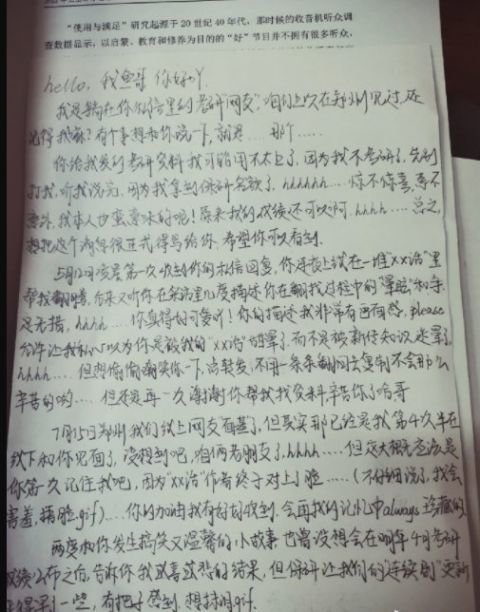 “使用与满足”研究起源于20世纪40年代，那时候的收音机听众调
查数据显示，以启蒙、教育和修养为目的的“好”节目并不拥有很多听众，
hello，我鱼哥 你好吖
我是躺在你私信里的考研“网友”，咱们上次在郑州见过，还
记得我嘛？有个事想和你说一下，就是…… 那个……
你给我发的考研资料我可能用不太上了，因为我不考研了，先别
打我，听我说完，因为我拿到保研名额了，hhhhhh……惊不惊喜，意不
意外，我本人也蛮意外的呢！原来我的成绩还可以啊，hhhh……总之，
想把这个消息很正式得写给你，希望你可以看到。
5月12日凌晨第一次收到你的私信回复，你连夜上线在一堆“xx浩”里
帮我翻，后来又听你在谷浩里几度描述你在翻找过程中的“晕眩”和手
足无措，hhhh……你真得好可爱吖！你的描述我非常有画面感，please
允许让我私心以为你是被我的“xx浩”绕晕了而不是被新传知识迷晕了
hhhh……但想偷偷嘲笑你一下，尚转发，不用一条条翻回去复制不会那么
辛苦的哟……但还是再一次谢谢你帮我找资料辛苦你了哈哥
7月15日郑州我们线上网友面基了，但其实那已经是我第4次坐在
线下和你见面了，没想到吧，咱俩老朋友了，hhhh……但这大概应该是
你第一次记住我吧，因为“xx浩”作者终于对上了脸……（不仔细说了，我会
害羞，捂脸.gif）……你的加油我有好好收到，会再我的记忆中always 珍藏的
两度和你发生搞笑又温馨的小故事 也曾设想会在明年4月考研
成绩公布之后，告诉你我或喜或悲的结果，但保研让我们的“连续剧”更新
得早了一些，有把子感到，想